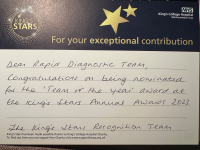 NHS
King's College Hospital
STARS
For your exceptional contribution
Dear Rapid Diagnostic Team,
Congratulations on being nominated
for the 'Team of the Year' award at
the King's Stars Annual Awards 2023
The King's Stars Recognition Team